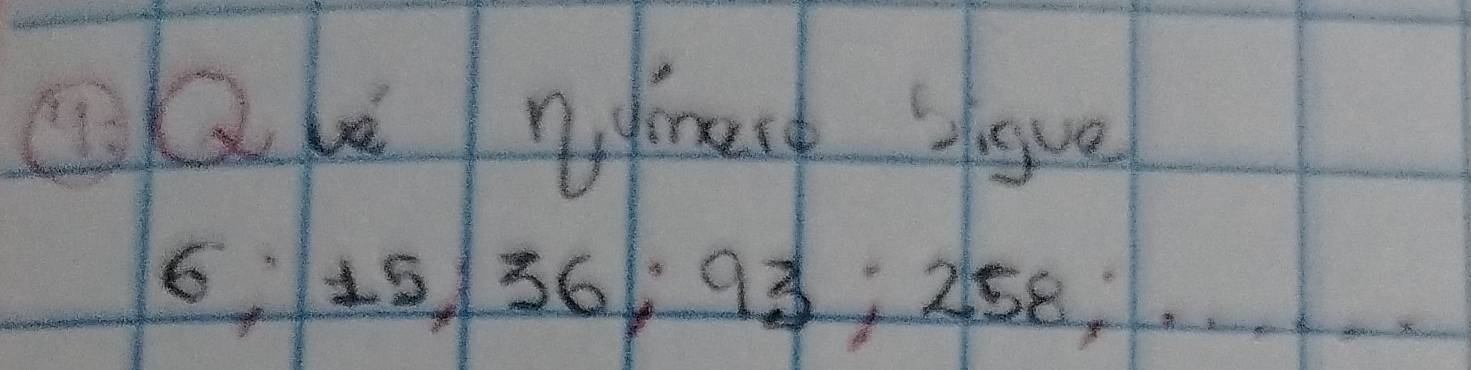 1. Qué número sigue
6; 15; 36; 93; 258; .......